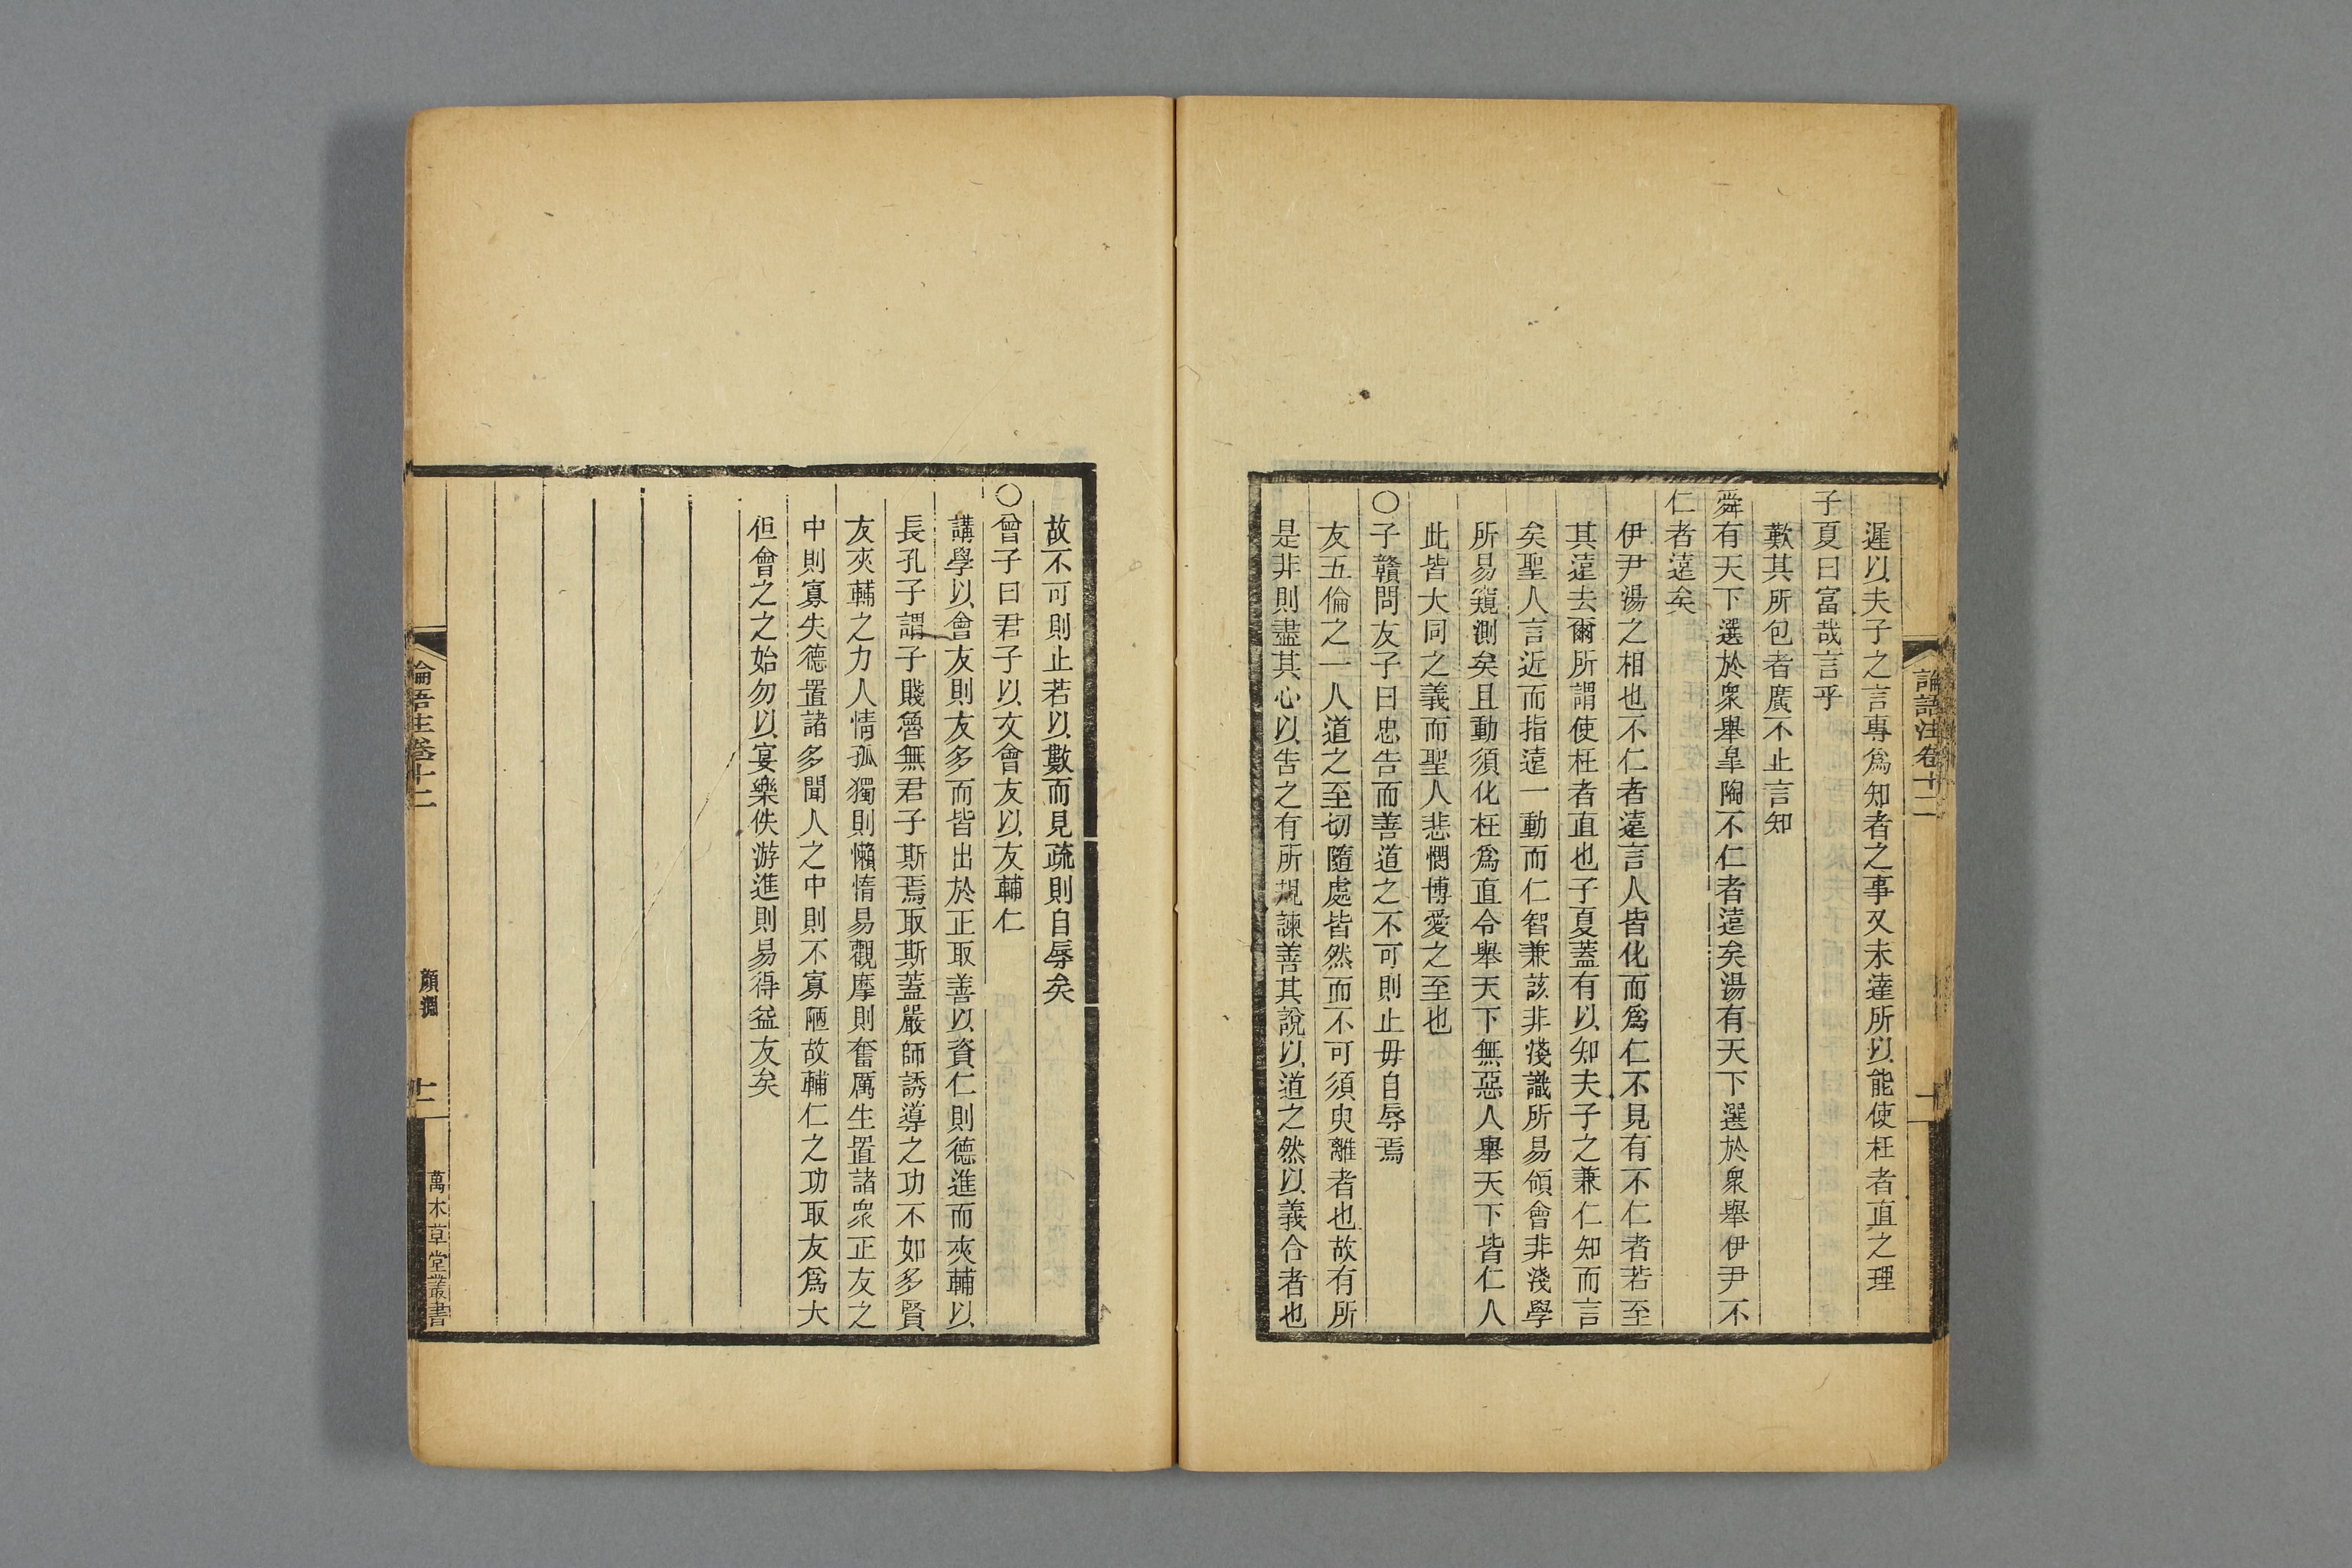 論語注卷十二
十
遲以夫子之言專爲知者之事又未達所以能使枉者直之理
子夏曰富哉言乎
歎其所包者廣不止言知
舜有天下選於衆舉皐陶不仁者遠矣湯有天下選於衆舉伊尹不
仁者遠矣
伊尹湯之相也不仁者遠言人皆化而爲仁不見有不仁者若至
其遠去爾所謂使枉者直也子夏蓋有以知夫子之兼仁知而言
矣聖人言近而指遠一動而仁智兼該非淺識所易領會非淺學
所易窺測矣且動須化枉爲直令舉天下無惡人舉天下皆仁人
此皆大同之義而聖人悲憫博愛之至也
○子贛問友子曰忠告而善道之不可則止毋自辱焉
友五倫之一人道之至切隨處皆然而不可須臾離者也故有所
是非則盡其心以告之有所規諫善其說以道之然以義合者也
故不可則止若以數而見疏則自辱矣
○曾子曰君子以文會友以友輔仁
講學以會友則友多而皆出於正取善以資仁則德進而夾輔以
長孔子謂子賤魯無君子斯焉取斯蓋嚴師誘導之功不如多賢
友夾輔之力人情孤獨則懶惰易觀摩則奮厲生置諸衆正友之
中則寡失德置諸多聞人之中則不寡陋故輔仁之功取友爲大
但會之之始勿以宴樂佚游進則易得益友矣
論語注卷十二
顏淵
十一
萬木草堂叢書